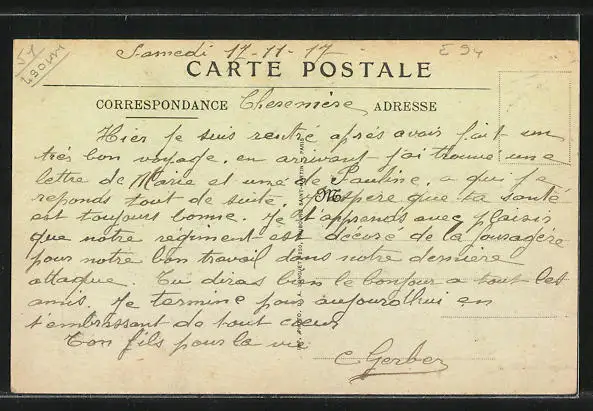 Samedi 17-11-17
E 94
CARTE POSTALE
CORRESPONDANCE Chere mère ADRESSE
Hier je suis rentré après avoir fait un
très bon voyage. en arrivant j'ai trouvé une
lettre de Marie et une de Pauline, a qui je
reponds tout de suite. J'espère que ta santé
est toujours bonne. Je t'apprends avec plaisir
que notre régiment est décoré de la fouragère
pour notre bon travail dans notre derniere
attaque. Tu diras bien le bonjour a tout les
amis. Je termine pour aujourd'hui en
t'embrassant de tout cœur
Ton fils pour la vie
C Gerber